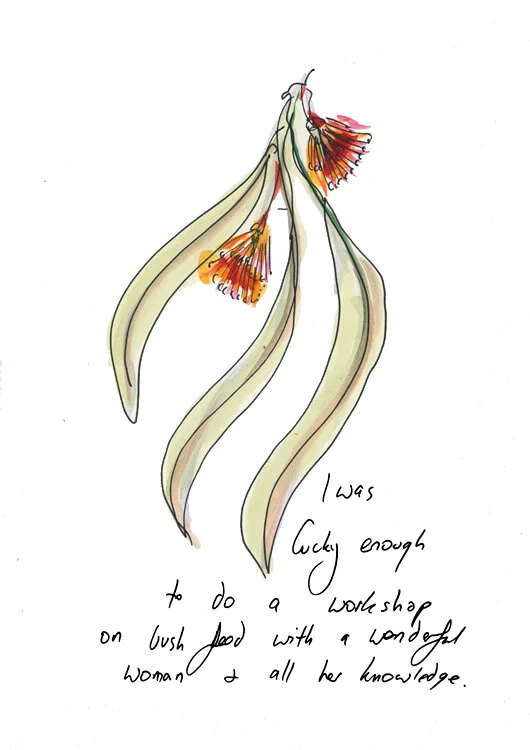 I was
lucky enough
to do a workshop
on bush food with a wonderful
woman & all her knowledge.